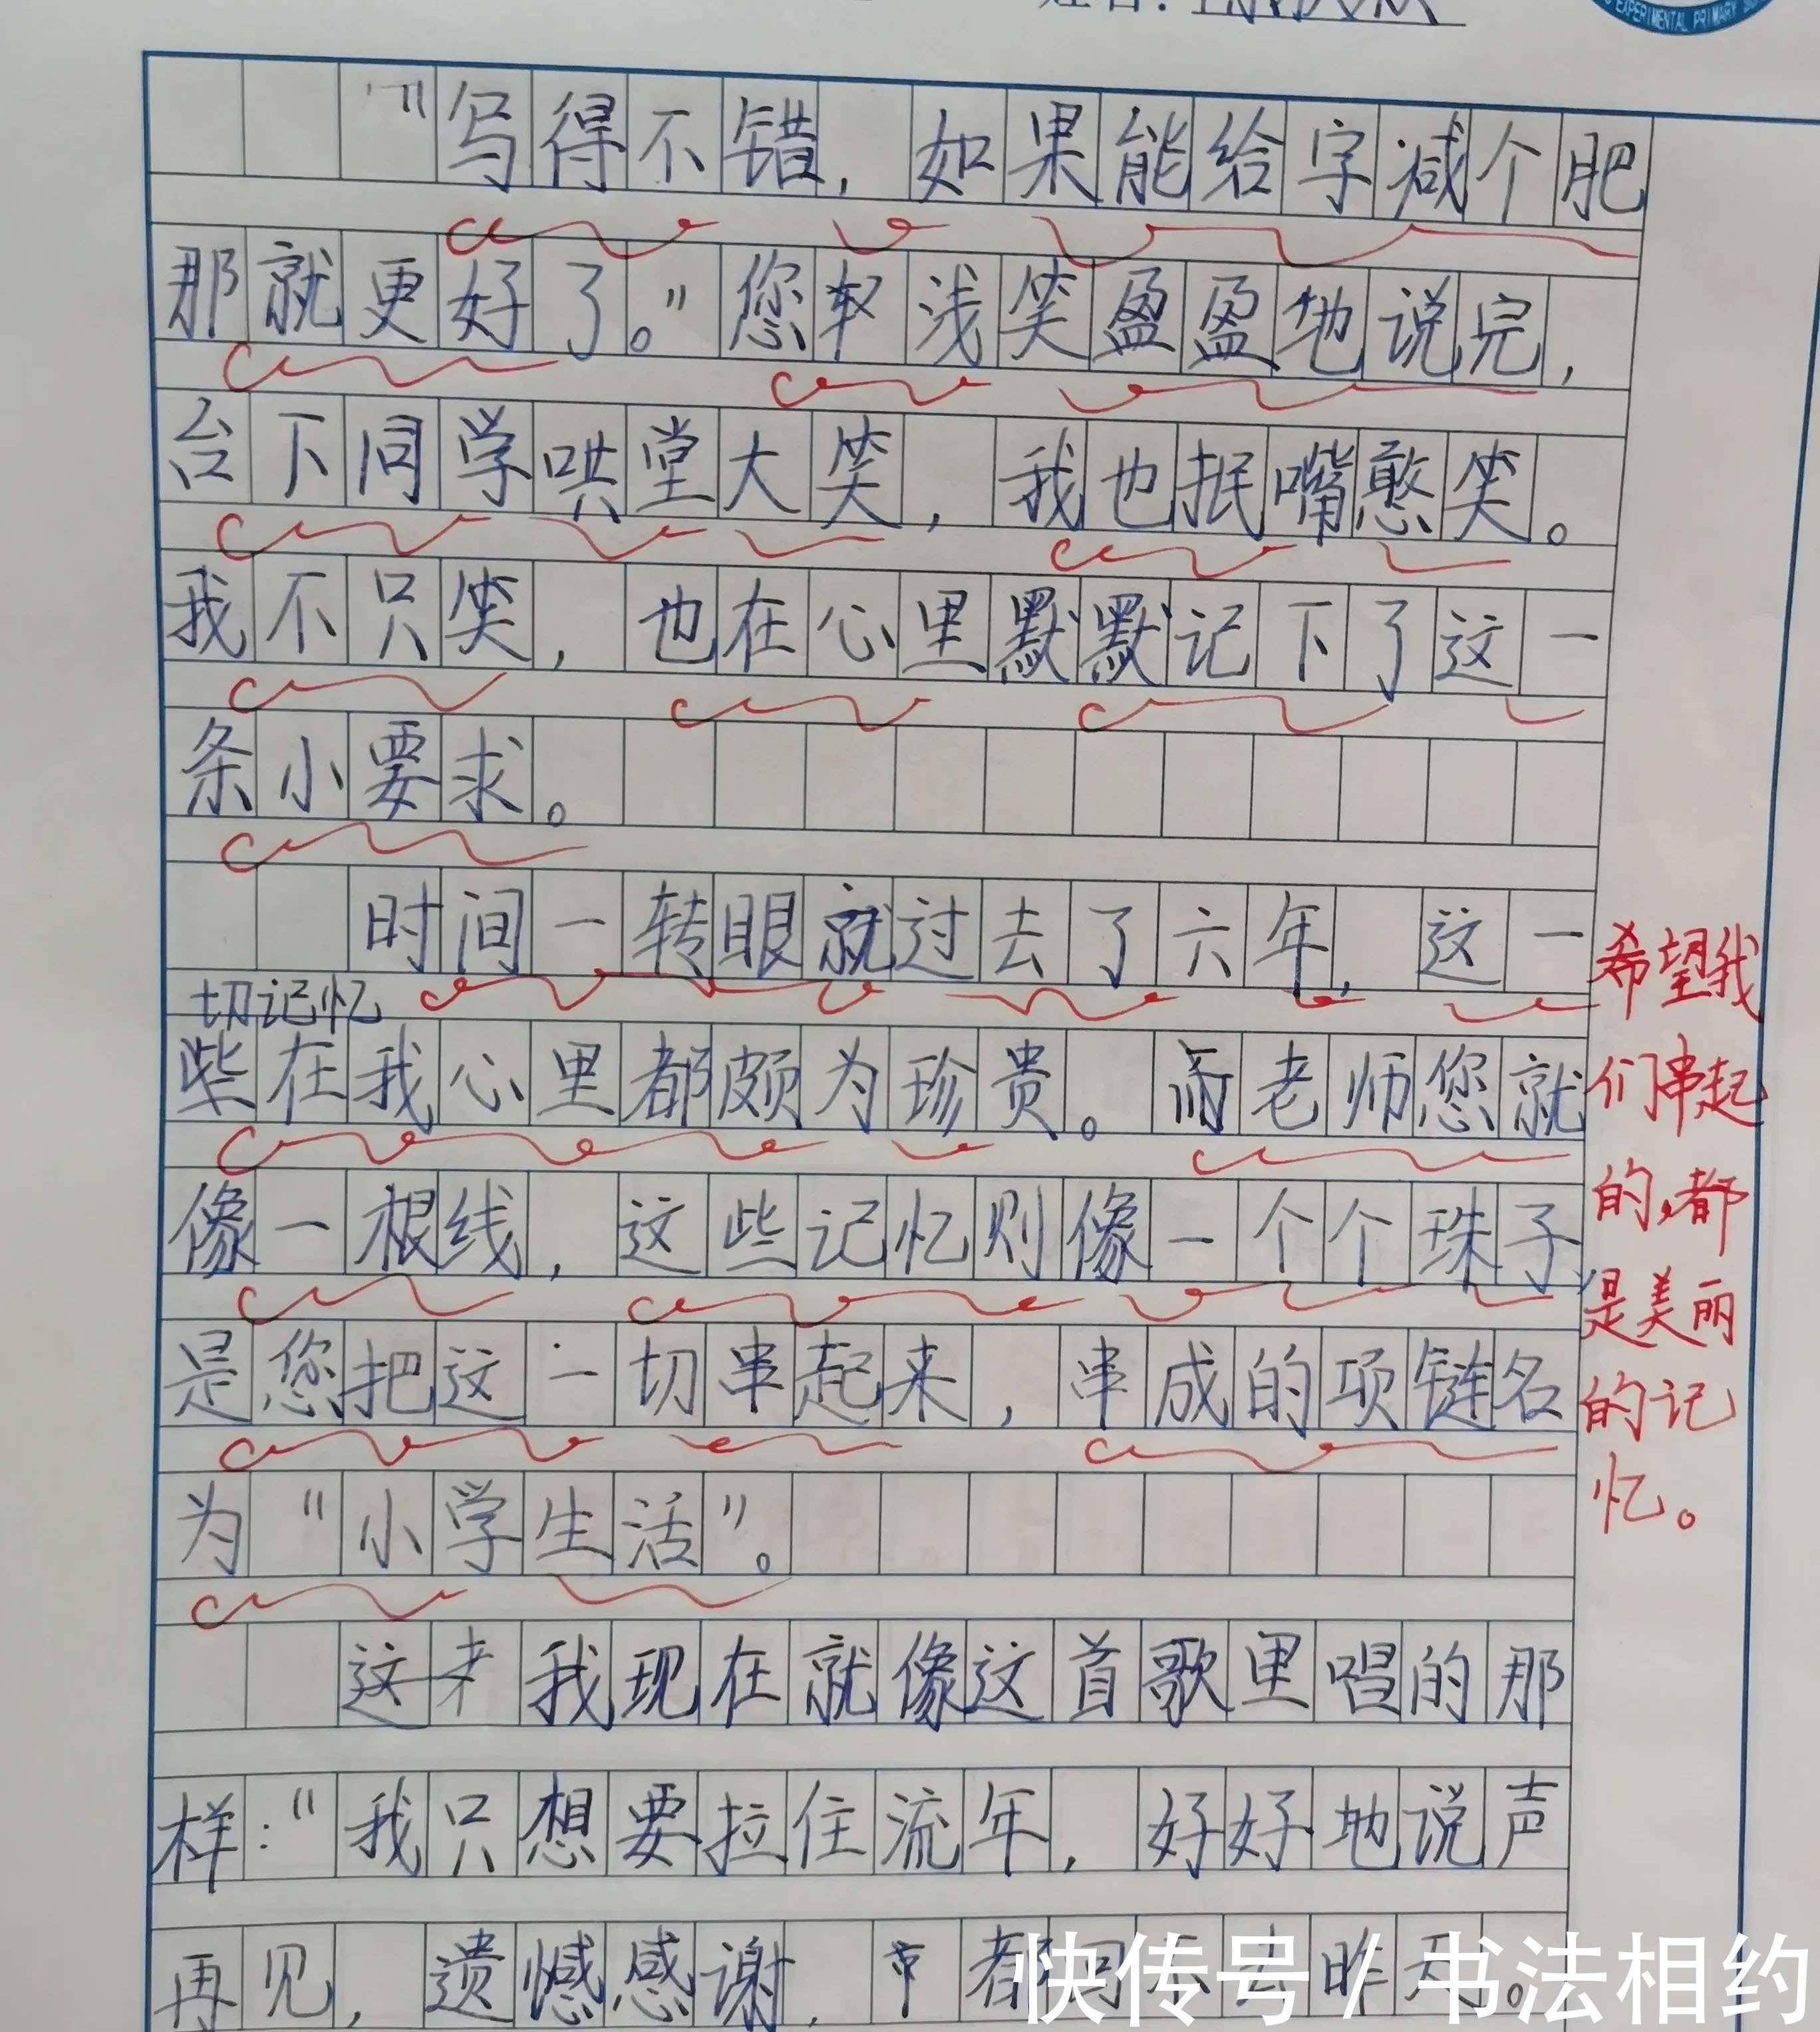 EXPERIMENTAL PRIMARY
“写得不错，如果能给字减个肥
那就更好了。”您浅笑盈盈地说完，
台下同学哄堂大笑，我也抿嘴憨笑。
我不只笑，也在心里默默记下了这一
条小要求。
时间一转眼就过去了六年，这一
切记忆
些在我心里都颇为珍贵。而老师您就
像一根线，这些记忆则像一个个珠子
是您把这一切串起来，串成的项链名
为“小学生活”。
希望我
们串起
的，都
是美丽
的记
忆。
我现在就像这首歌里唱的那
样：“我只想要拉住流年，好好地说声
再见，遗憾感谢，都回不去昨天。
快传号 / 书法相约